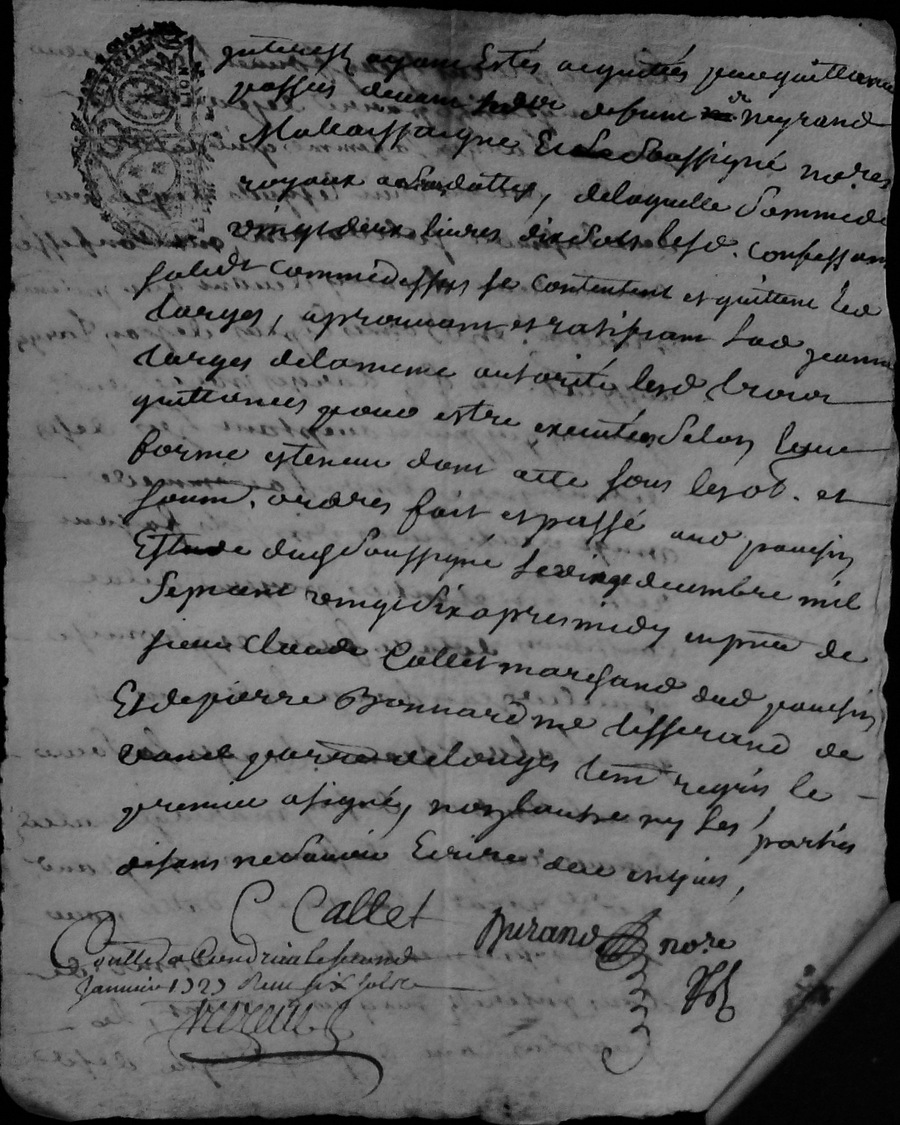 interest ayant Estés acquittés par quittance
passés devant defunt me neyrand
Et le Soussigné nores
royaux a Sa datte, de laquelle Somme de
vingt deux livres dix Sols lesd. confessant
solidt comme dessus se contentent et quittent led
Larges, aprouvant et ratiffiant Lad jeanne
Larges de la meme autorité lesd
quittances pour estre executées Selon leur
forme et teneur dont acte sous les ob. et
soum. ordres fait et passé aud
Estude dud Soussigné Le vingt decembre mil
Sept cent vingt Six apres midy en pnce de
sieur Claude Callet marchand dud
Et de pierre Bonnard me tisserand de
parre de Longes tem requis le
premier a signé, non lautre ny les parties
disans ne Savoir Ecrire de ce enquis,
C Callet
Durand nore
Contlé a Condrieu le second
Janvier 1727 Reçu six sols